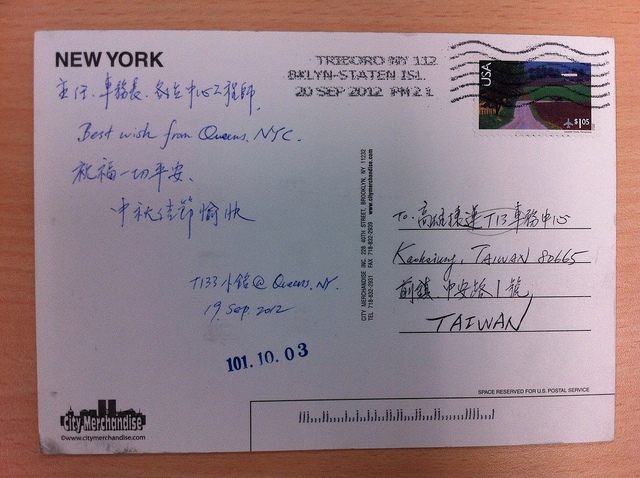 NEW YORK
主任、車務長、各位中心工程師
Best wish from Queens, NYC.
祝福一切平安、
中秋佳節愉快
T133小銘@ Queens, NY.
19, Sep. 2012
101.10.03
City Merchandise
©www.citymerchandise.com
TRIBORO NY 112
BKLYN-STATEN ISL
20 SEP 2012 PM 2 L
USA
$1.05
CITY MERCHANDISE INC. 228 40TH STREET, BROOKLYN, NY 11232
TEL 718-832-2931 FAX 718-832-2939 www.citymerchandise.com
To: 高雄捷運T13車務中心
Kaohsiung, TAIWAN 80665
前鎮、中安路1號
TAIWAN
SPACE RESERVED FOR U.S. POSTAL SERVICE